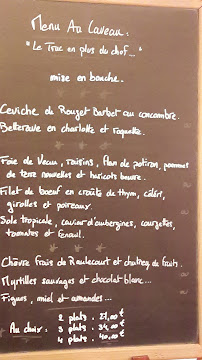 Menu Au Caveau :
"Le Truc en plus du chef..."
mise en bouche.
Ceviche de Rouget Barbet au concombre.
Betterave en charlotte et roquette.
Foie de Veau, raisins, flan de potiron, pommes
de terre nouvelles et haricots beurre.
Filet de boeuf en croûte de thym, céleri,
girolles et poireaux.
Sole tropicale, caviar d'aubergines, courgettes,
tomates et fenouil.
Chèvre frais de Raulecourt et chutney de fruit.
Myrtilles sauvages et chocolat blanc...
Figues, miel et amandes...
2 plats . 27,00 €
Au choix : 3 plats . 34,00 €
4 plats . 40,00 €